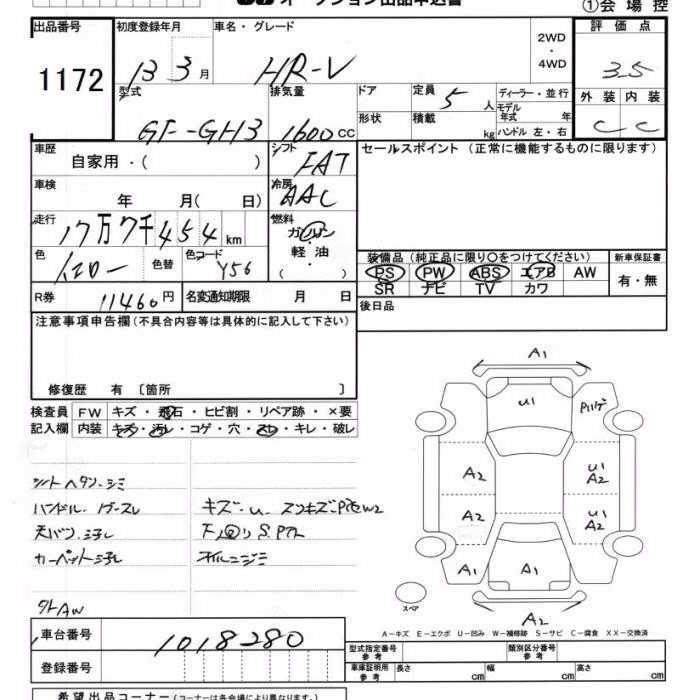 オークション出品申込書
①会場控
出品番号 1172
初度登録年月 13 3月
車名・グレード HR-V
2WD・4WD
評価点 3.5
型式 GF-GH3
排気量 1600cc
ドア 形状
定員 5人
積載 kg
ディーラー・並行
モデル年式 年
ハンドル 左・右
外装 内装
C C
車歴 自家用・( )
シフト FAT
セールスポイント (正常に機能するものに限ります)
車検 年 月( 日)
冷房 AAC
走行 17万7千454km
燃料 ガソリン・軽油 ( )
色 色替
色コード Y56
装備品 (純正品に限り○をつけてください)
新車保証書
PS PW ABS エアB AW
SR ナビ TV カワ
有・無
R券 11460円
名変通知期限 月 日
後日品
注意事項申告欄 (不具合内容等は具体的に記入して下さい)
修復歴 有 〔箇所 〕
検査員記入欄
FW キズ・飛石・ヒビ割・リペア跡・×要
内装 キズ・汚レ・コゲ・穴・スレ・キレ・破レ
シートヘタリ.シミ
ハンドル.
キズ・U.
カーペット
外AW
A1
U1
A2
U1 A2
A2
U1 A2
A1
A1
A1
A2
スペア
A-キズ E-エクボ U-凹み W-補修跡 S-サビ C-腐食 XX-交換済
車台番号 1018280
登録番号
型式指定番号 参考
類別区分番号 参考
車庫証明用 参考 長さ cm 幅 cm 高さ cm
希望出品コーナー (コーナーは各会場により異なります。)